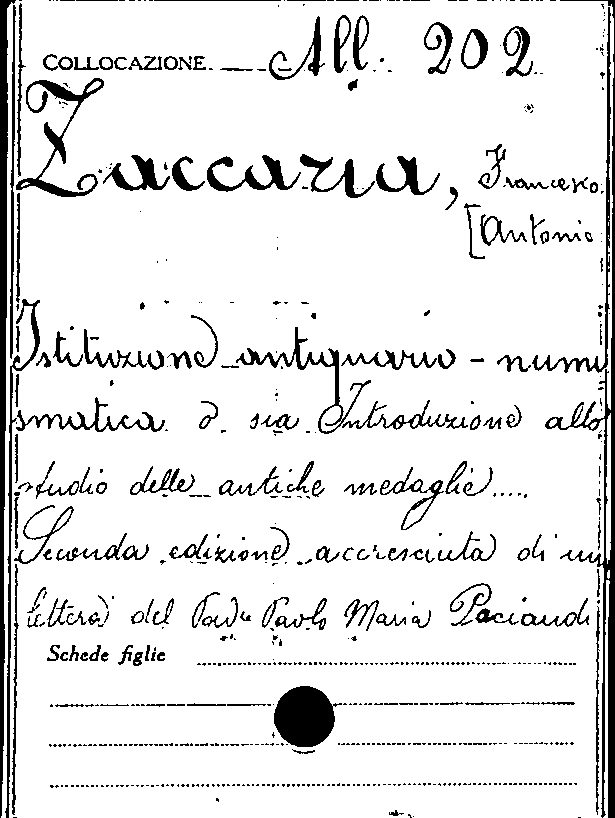 COLLOCAZIONE All. 202
Zaccaria, Francesco
[Antonio
Istituzione antiquario - numi
smatica o sia Introduzione allo
studio delle antiche medaglie.....
Seconda edizione accresciuta di un
lettera del Padre Paolo Maria Paciaudi
Schede figlie